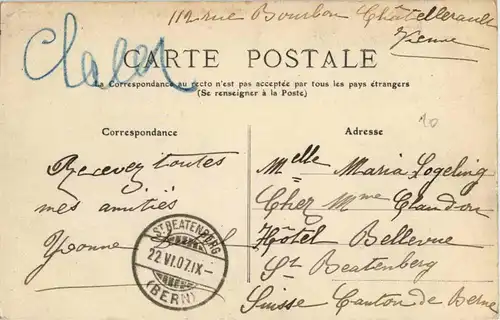 112 rue Bourbon Châtellerault
Vienne
CARTE POSTALE
La Correspondance au recto n'est pas acceptée par tous les pays étrangers
(Se renseigner à la Poste)
Correspondance
Recevez toutes
mes amitiés
Yvonne
ST. BEATENBERG
22.VI.07.IX-
(BERN)
Adresse
20
Melle Maria Logeling
Chez Mme Claudon
Hôtel Bellevue
St Beatenberg
Suisse Canton de Berne